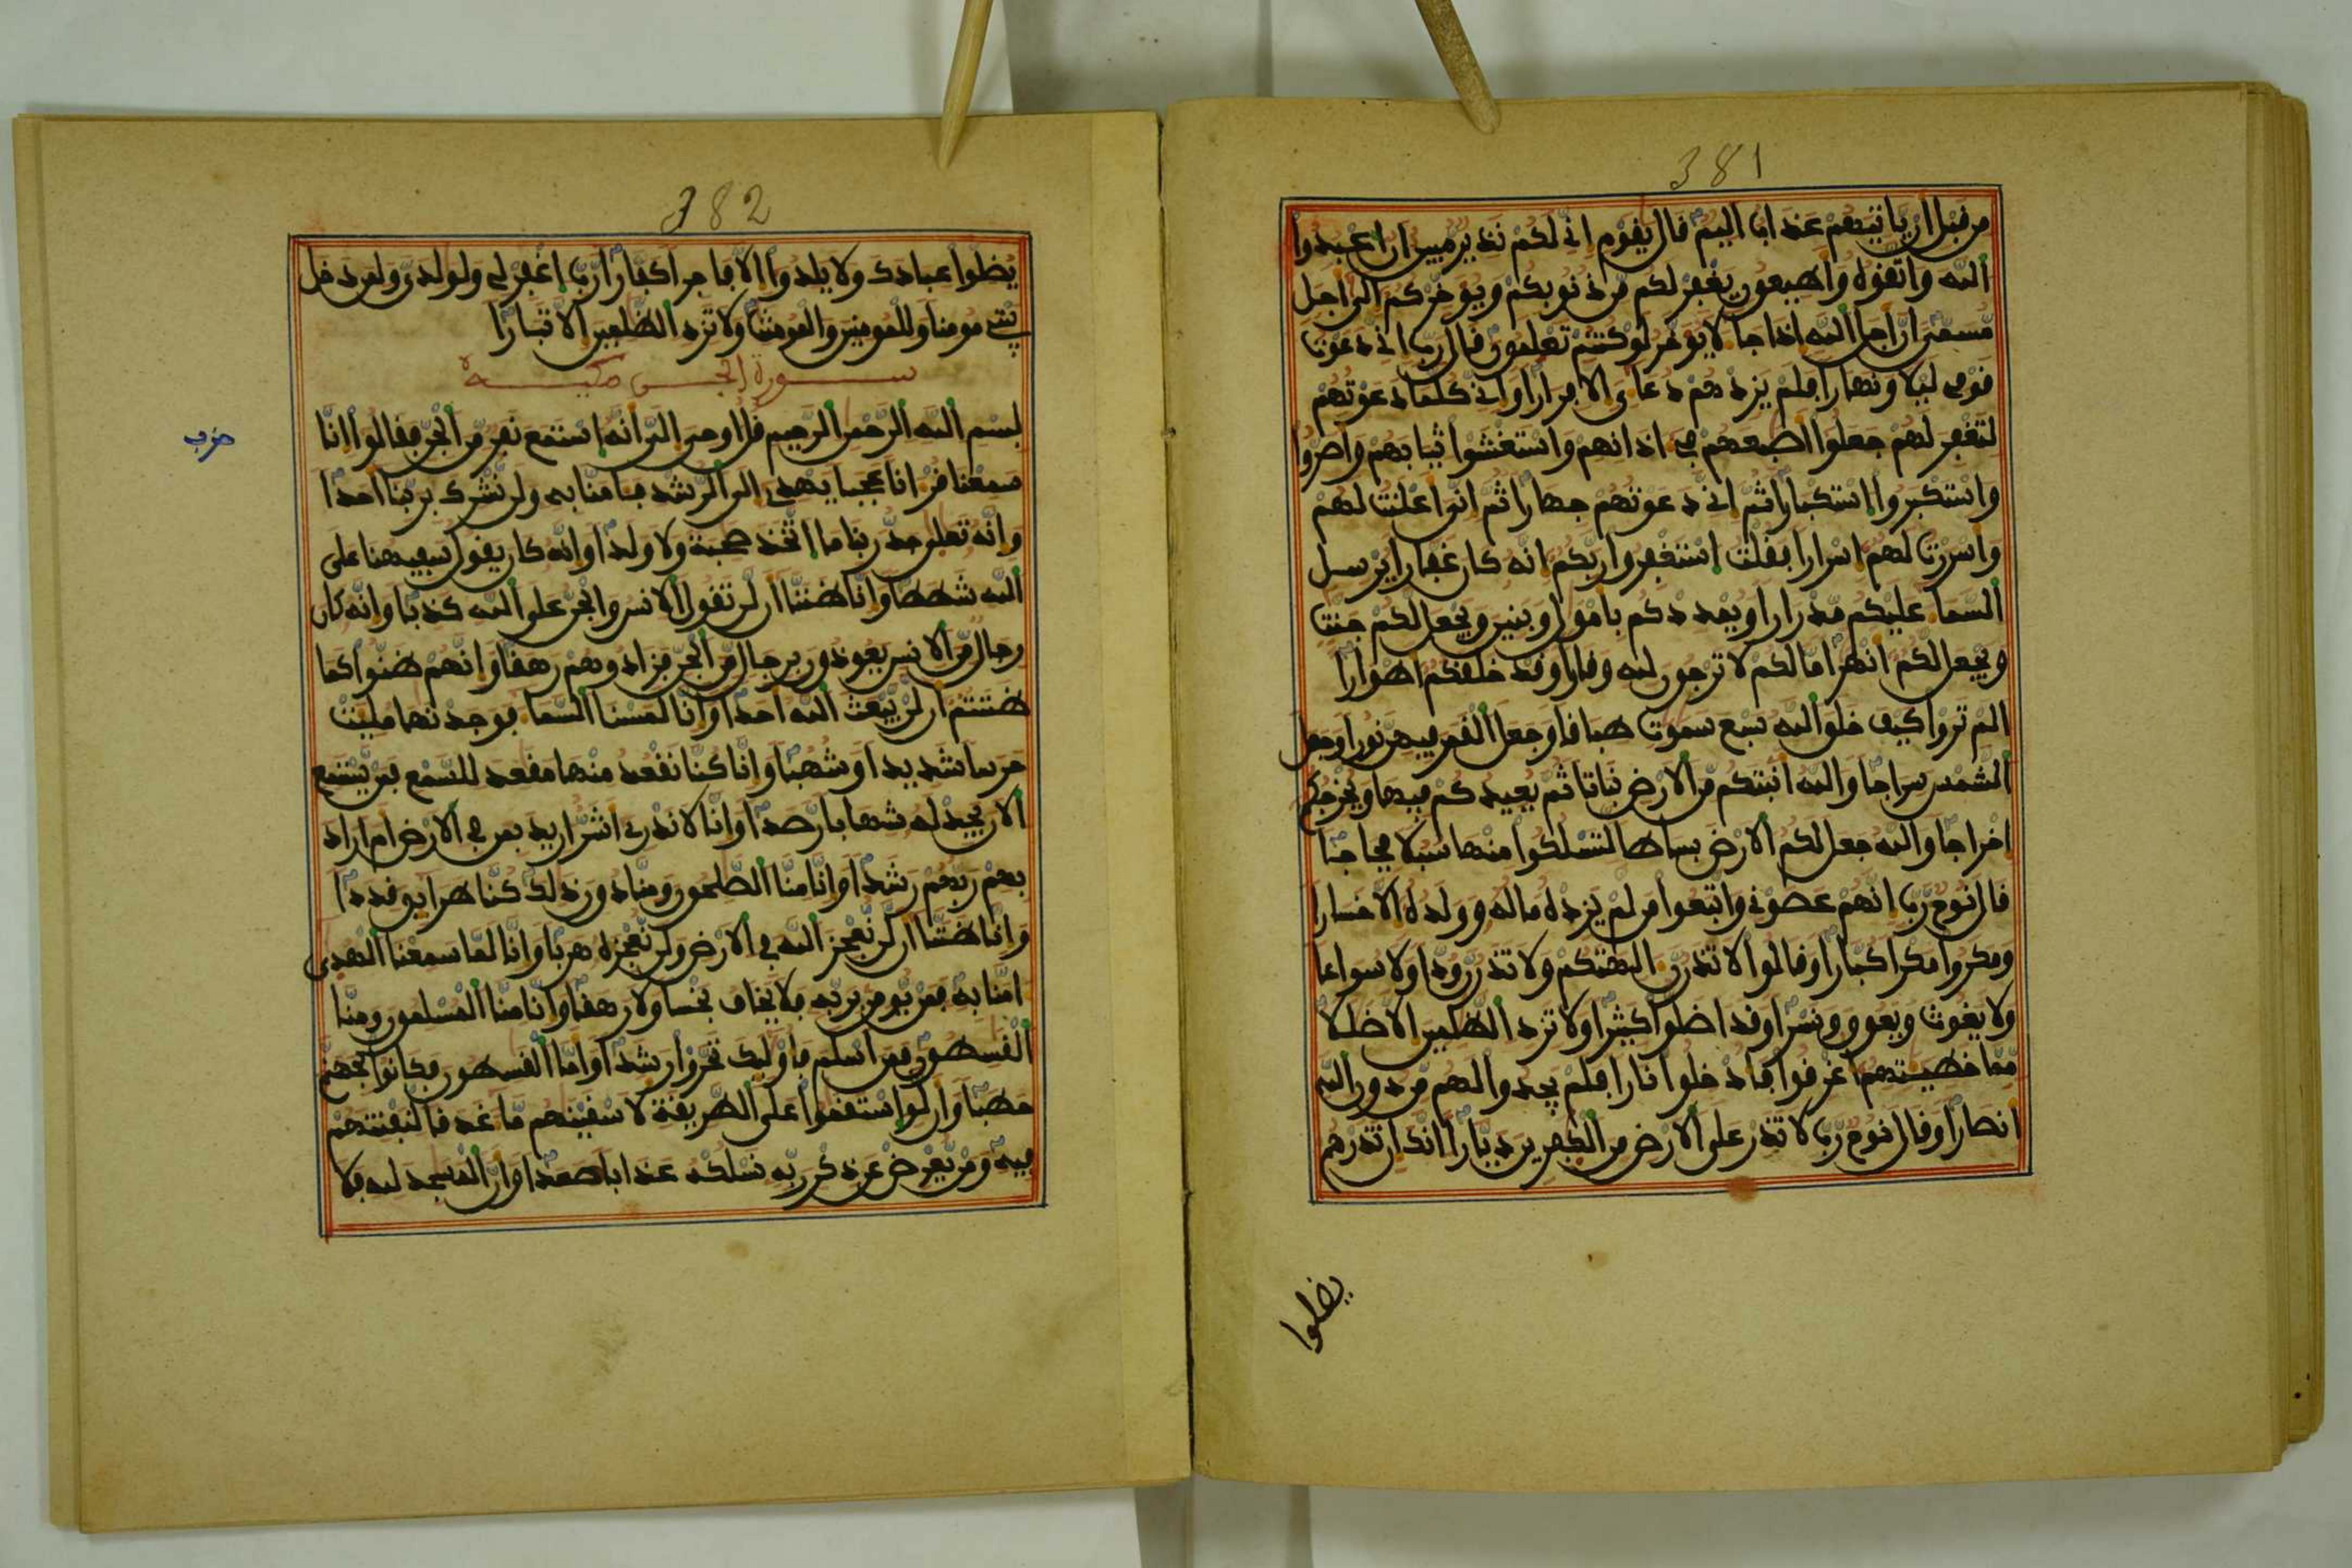 381
من قبل ان ياتيهم عذاب اليم قال يقوم اني لكم نذير مبين ان اعبدوا
الله واتقوه واطيعون يغفر لكم من ذنوبكم ويوخركم الى اجل
مسمى ان اجل الله اذا جا لا يوخر لو كنتم تعلمون قال رب اني دعوت
قومي ليلا ونهارا فلم يزدهم دعاي الا فرارا واني كلما دعوتهم
لتغفر لهم جعلوا اصبعهم في اذانهم واستغشوا ثيابهم واصروا
واستكبروا استكبارا ثم اني دعوتهم جهارا ثم اني اعلنت لهم
واسررت لهم اسرارا فقلت استغفروا ربكم انه كان غفارا يرسل
السما عليكم مدرارا ويمددكم بامول وبنين ويجعل لكم جنت
ويجعل لكم انهرا ما لكم لا ترجون لله وقارا وقد خلقكم اطوارا
الم تروا كيف خلق الله سبع سموت طباقا وجعل القمر فيهن نورا وجعل
الشمس سراجا والله انبتكم من الارض نباتا ثم يعيدكم فيها ويخرجكم
اخراجا والله جعل لكم الارض بساطا لتسلكوا منها سبلا فجاجا
قال نوح رب انهم عصوني واتبعوا من لم يزده ماله وولده الا خسارا
ومكروا مكرا كبارا وقالوا لا تذرن الهتكم ولا تذرن ودا ولا سواعا
ولا يغوث ويعوق ونسرا وقد اضلوا كثيرا ولا تزد الظلمين الا ضللا
مما خطيـتهم اغرقوا فادخلوا نارا فلم يجدوا لهم من دون الله
انصارا وقال نوح رب لا تذر على الارض من الكفرين ديارا انك ان تذرهم
يضلوا
382
يضلوا عبادك ولا يلدوا الا فاجرا كفارا رب اغفر لي ولولدي ولمن دخل
بيتي مومنا وللمومنين والمومنت ولا تزد الظلمين الا تبارا
سورة الجن مكية
بسم الله الرحمن الرحيم قل اوحي الي انه استمع نفر من الجن فقالوا انا
سمعنا قرانا عجبا يهدي الى الرشد فامنا به ولن نشرك بربنا احدا
وانه تعلى جد ربنا ما اتخذ صحبة ولا ولدا وانه كان يقول سفيهنا على
الله شططا وانا ظننا ان لن تقول الانس والجن على الله كذبا وانه كان
رجال من الانس يعوذون برجال من الجن فزادوهم رهقا وانهم ظنوا كما
ظننتم ان لن يبعث الله احدا وانا لمسنا السما فوجدنها مليت
حرسا شديدا وشهبا وانا كنا نقعد منها مقعد للسمع فمن يستمع
الان يجد له شهابا رصدا وانا لا ندري اشر اريد بمن في الارض ام اراد
بهم ربهم رشدا وانا منا الصلحون ومنا دون ذلك كنا طرايق قددا
وانا ظننا ان لن نعجز الله في الارض ولن نعجزه هربا وانا لما سمعنا الهدى
امنا به فمن يومن بربه فلا يخاف بخسا ولا رهقا وانا منا المسلمون ومنا
القسطون فمن اسلم فاوليك تحروا رشدا واما القسطون فكانوا لجهنم
حطبا وان لو استقموا على الطريقة لاسقينهم ما غدقا لنفتنهم
فيه ومن يعرض عن ذكر ربه نسلكه عذابا صعدا وان المسجد لله فلا
حزب